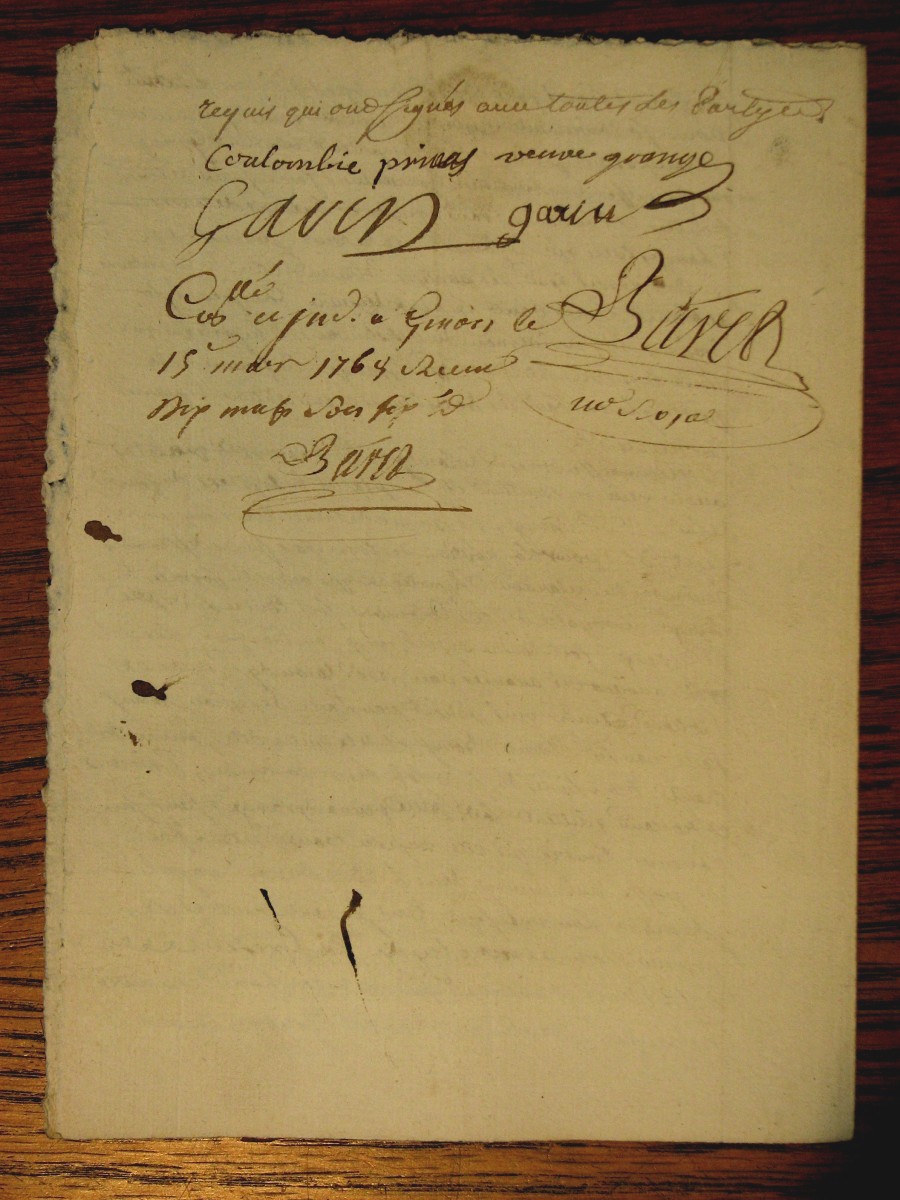 requis qui ond signés avec toutes les Partyes
Coulombe prinas veuve grange
Gavin garin
Con.llé et jnd. a Givors le Barea
15 mars 1764 Recu
dix neuf sols six d no Roya
Barea